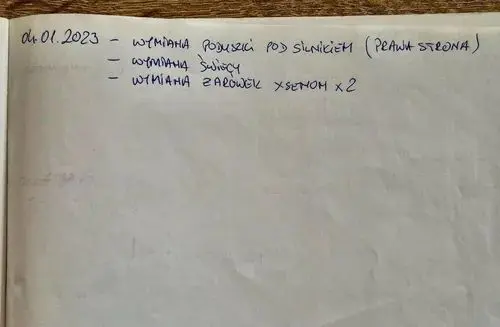 04.01.2023 - WYMIANA PODUSZKI POD SILNIKIEM (PRAWA STRONA)
- WYMIANA ŚWIECY
- WYMIANA ŻARÓWEK XSENON x2